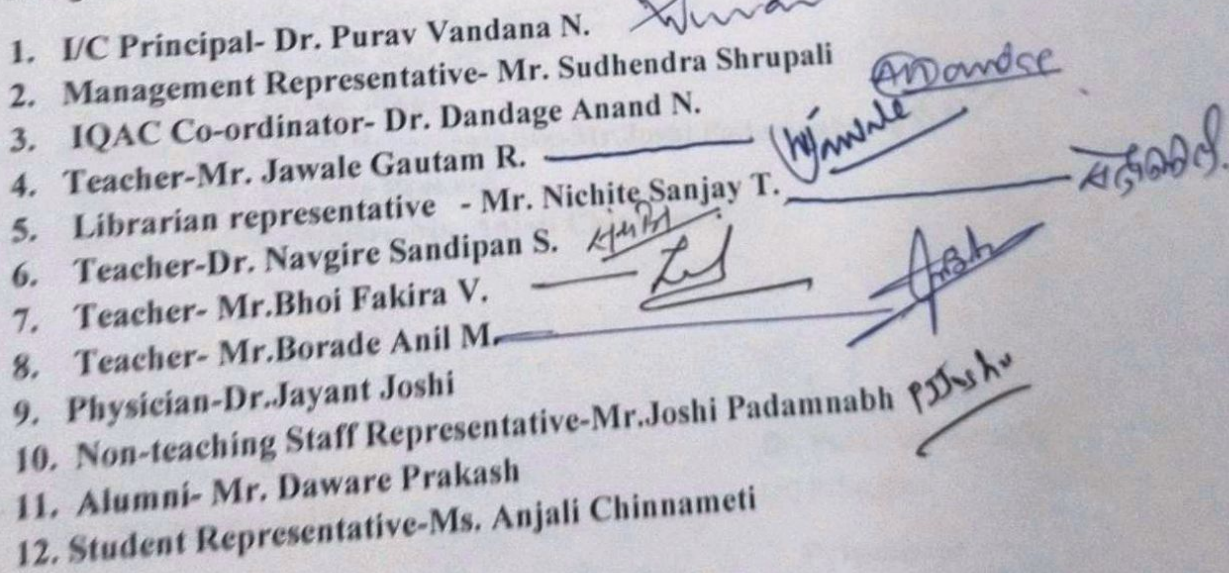 1. I/C Principal- Dr. Purav Vandana N.
2. Management Representative- Mr. Sudhendra Shrupali
3. IQAC Co-ordinator- Dr. Dandage Anand N.
4. Teacher-Mr. Jawale Gautam R.
5. Librarian representative - Mr. Nichite Sanjay T.
6. Teacher-Dr. Navgire Sandipan S.
7. Teacher- Mr.Bhoi Fakira V.
8. Teacher- Mr.Borade Anil M.
9. Physician-Dr.Jayant Joshi
10. Non-teaching Staff Representative-Mr.Joshi Padamnabh
11. Alumni- Mr. Daware Prakash
12. Student Representative-Ms. Anjali Chinnameti